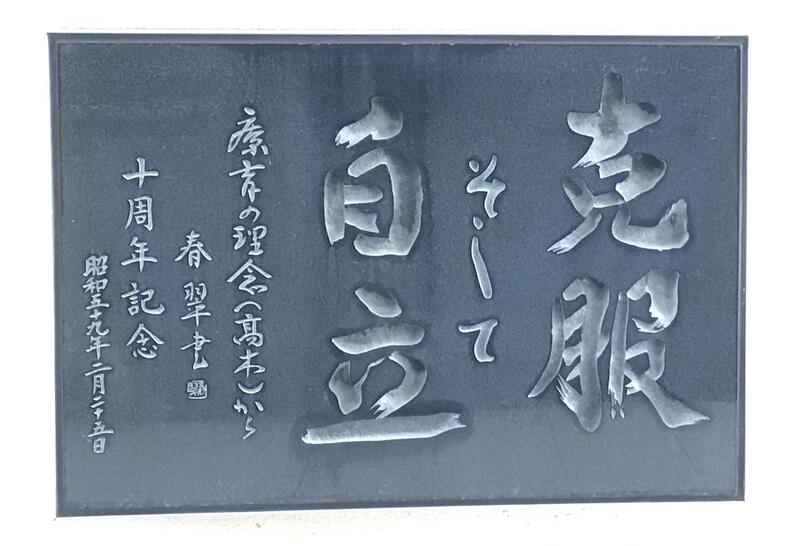 克服
そして
自立
療育の理念(髙木)から
春翠書
十周年記念
昭和五十九年二月二十五日